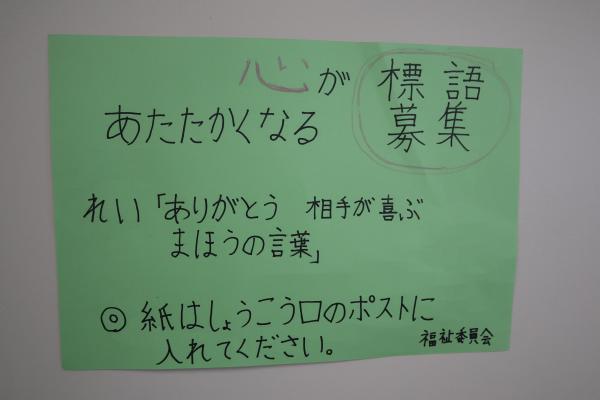 心が
あたたかくなる
標語
募集
れい「ありがとう 相手が喜ぶ
まほうの言葉」
◎ 紙はしょうこう口のポストに
入れてください。
福祉委員会